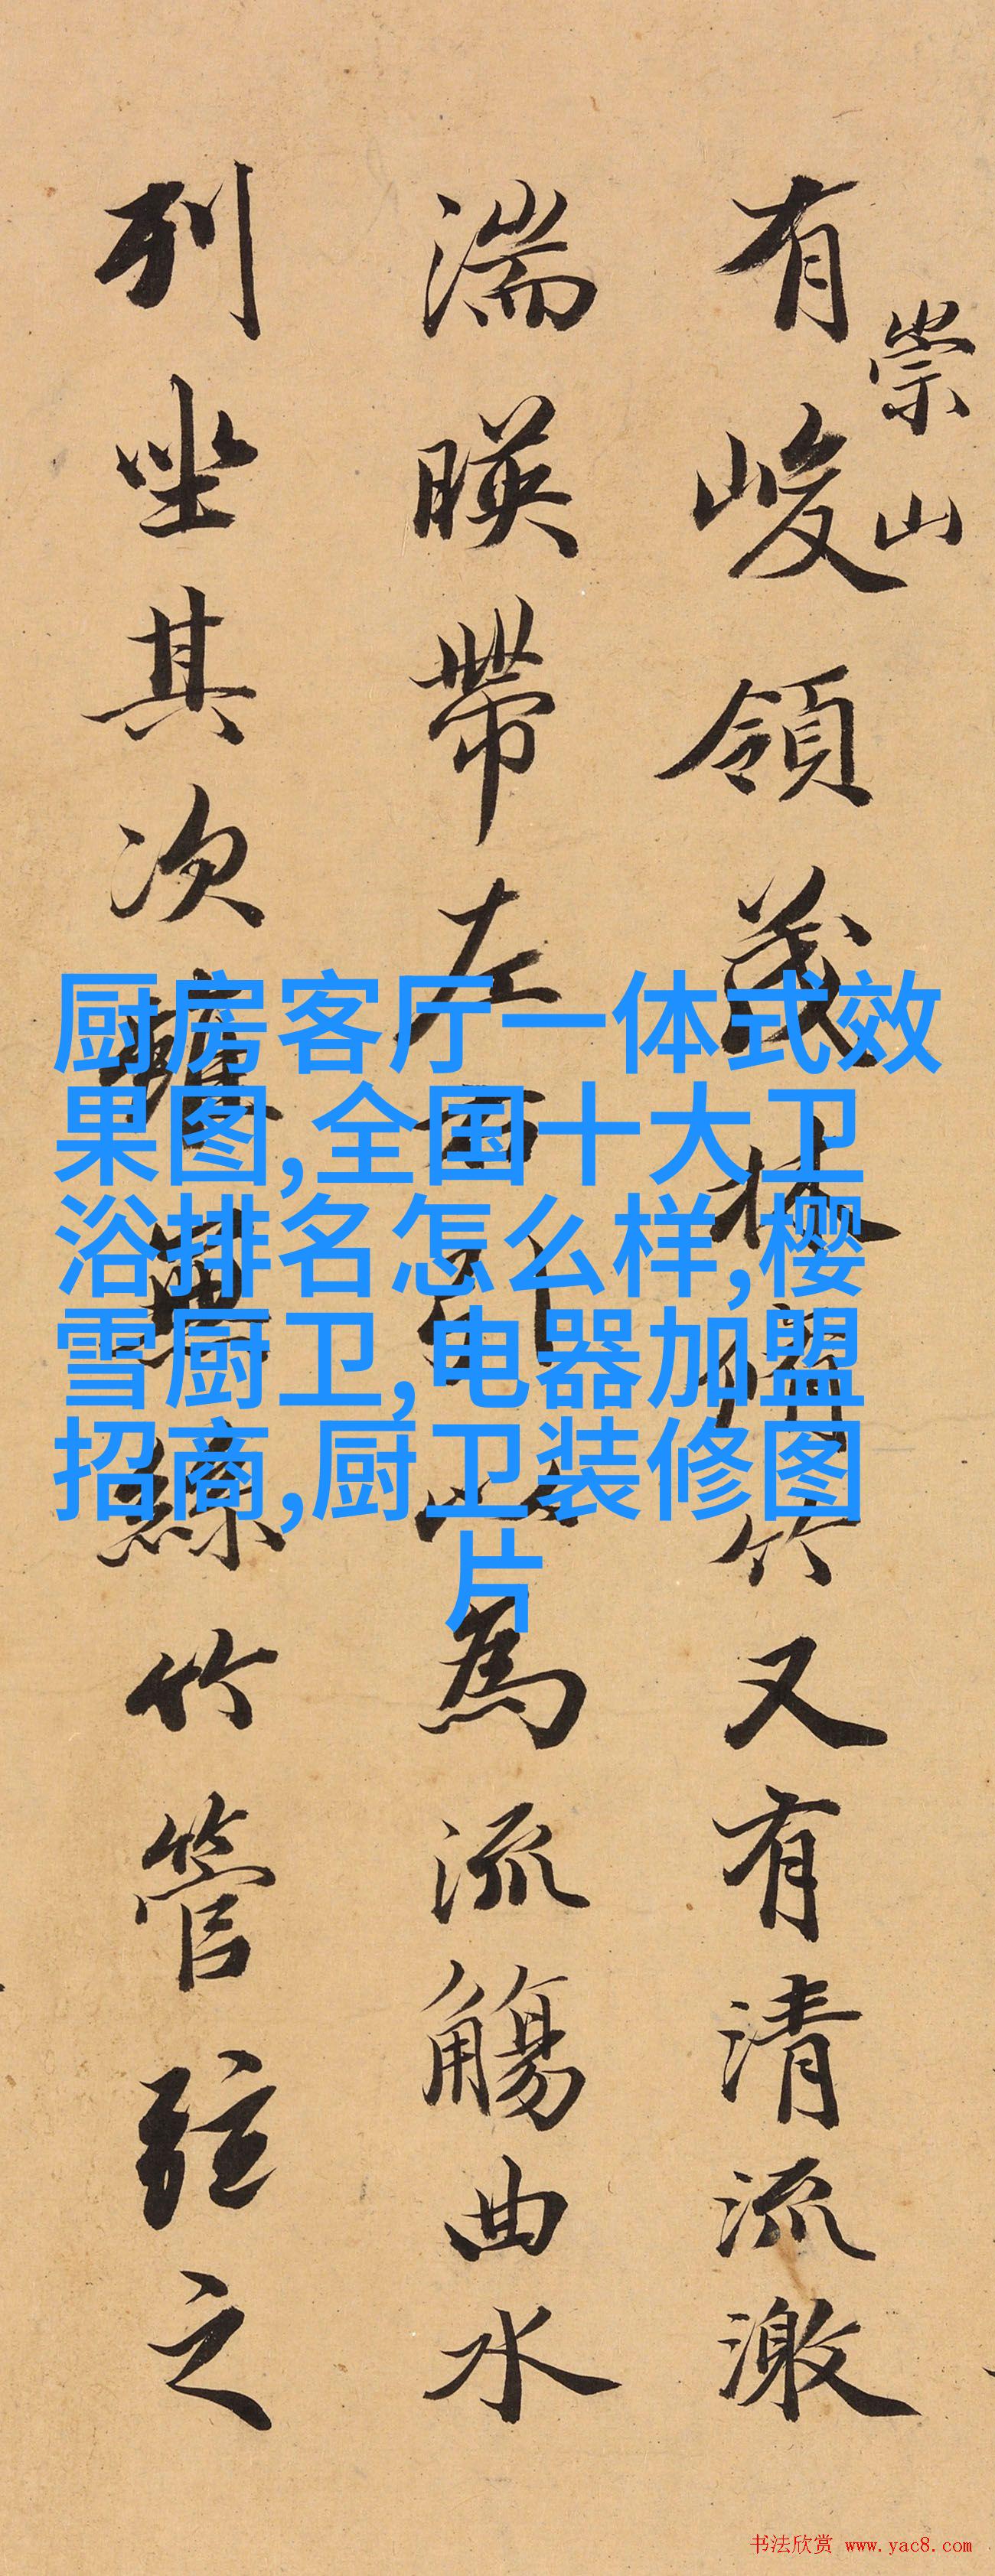 崇山
有峻領茂林脩竹又有清流激
湍暎帶左右引以為流觴曲水
列坐其次雖無絲竹管弦之
厨房客厅一体式效
果图,全国十大卫
浴排名怎么样,樱
雪厨卫,电器加盟
招商,厨卫装修图
片
书法欣赏 www.yac8.com